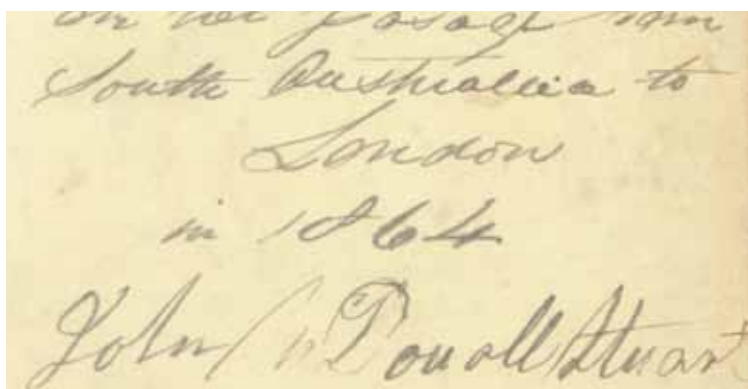 on her passage from
South Australia to
London
in 1864
John McDouall Stuart